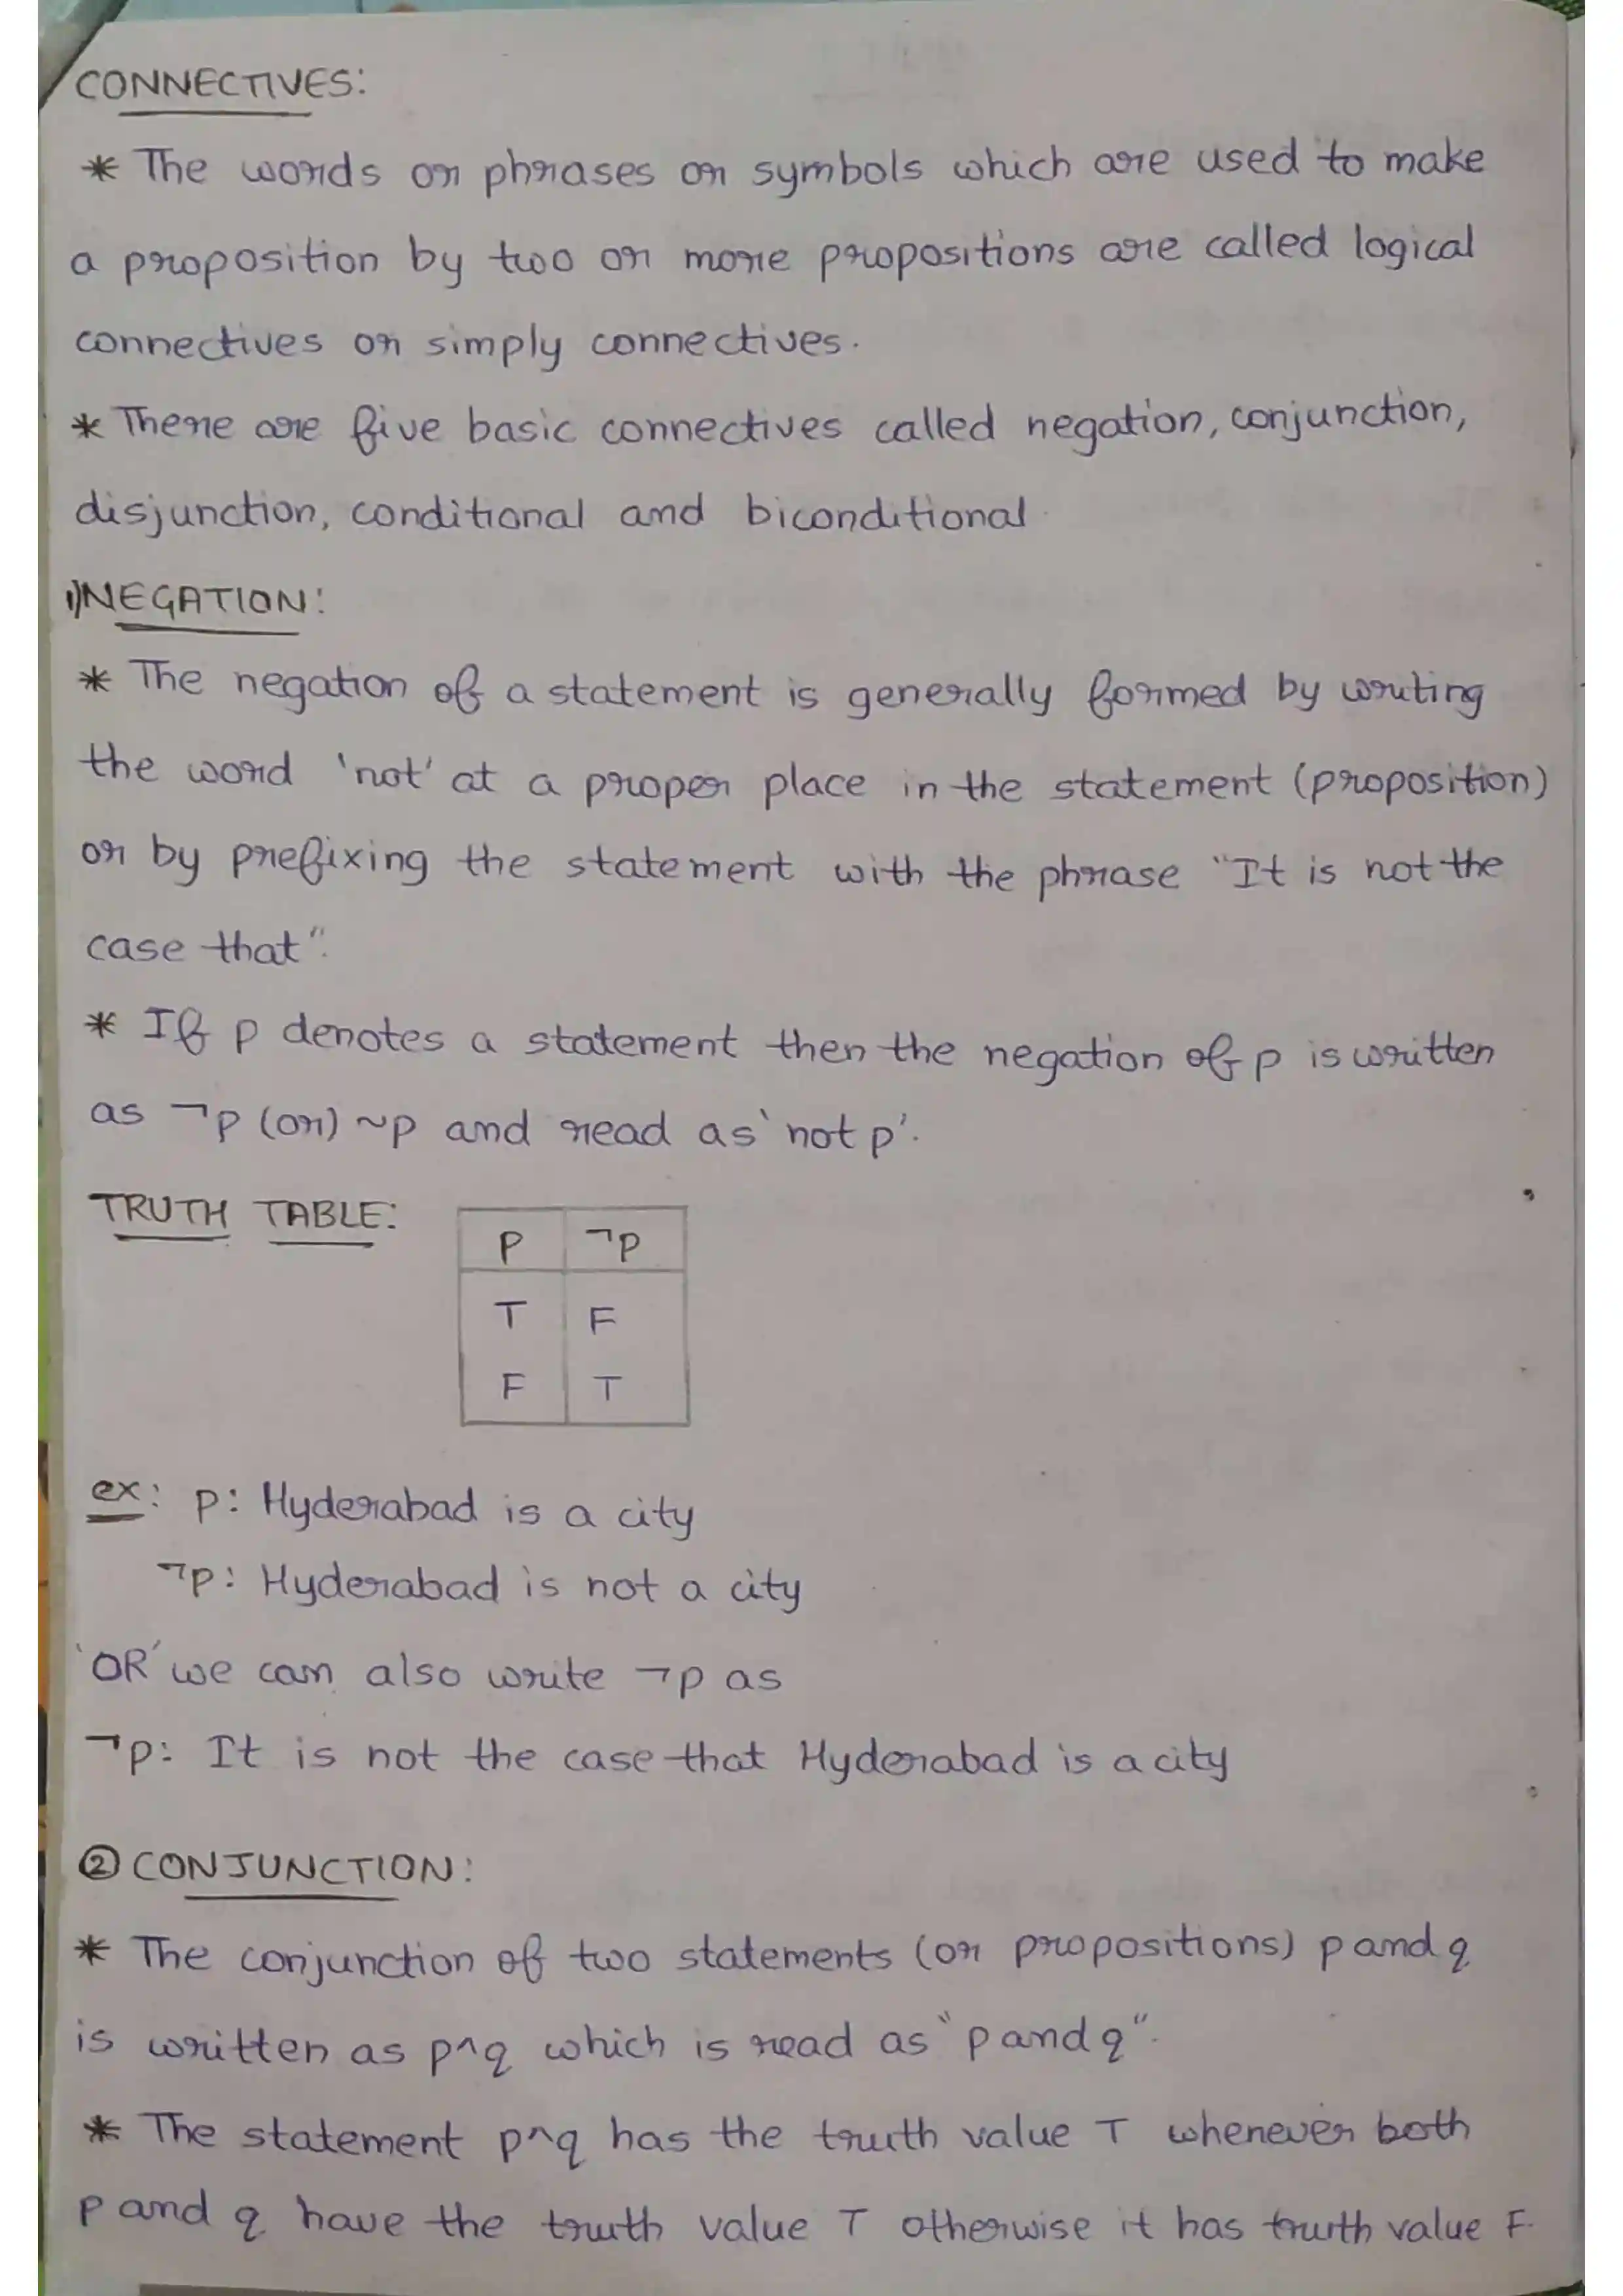 CONNECTIVES:
* The words or phrases or symbols which are used to make
a proposition by two or more propositions are called logical
connectives or simply connectives.
* There are five basic connectives called negation, conjunction,
disjunction, conditional and biconditional
1) NEGATION:
* The negation of a statement is generally formed by writing
the word 'not' at a proper place in the statement (proposition)
or by prefixing the statement with the phrase "It is not the
case that".
* If p denotes a statement then the negation of p is written
as ¬p (or) ~p and read as 'not p'.
TRUTH TABLE:
P ¬p
T F
F T
ex: p: Hyderabad is a city
¬p: Hyderabad is not a city
'OR' we can also write ¬p as
¬p: It is not the case that Hyderabad is a city
② CONJUNCTION:
* The conjunction of two statements (or propositions) p and q
is written as p^q which is read as "p and q".
* The statement p^q has the truth value T whenever both
p and q have the truth value T otherwise it has truth value F.